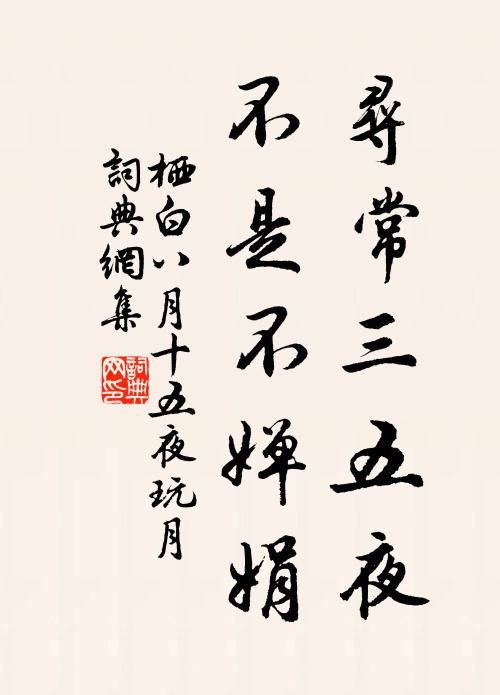 尋常三五夜
不是不嬋娟
栖白八月十五夜玩月
詞典網集
詞典网印